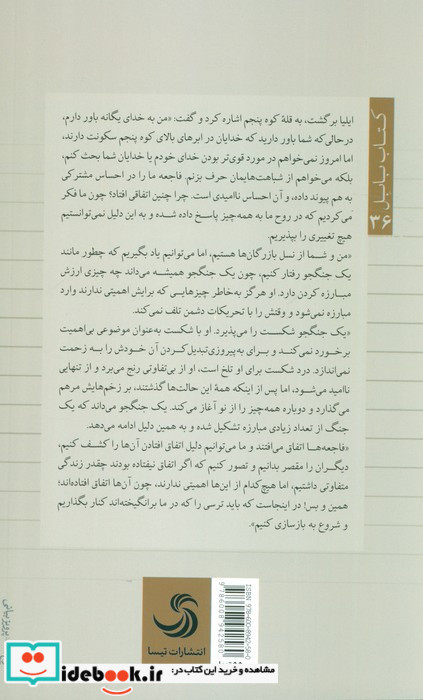 کتاب بابل ۳۶
ایلیا برگشت، به قلهٔ کوه پنجم اشاره کرد و گفت: «من به خدای یگانه باور دارم،
درحالی‌که شما باور دارید که خدایان در ابرهای بالای کوه پنجم سکونت دارند،
اما امروز نمی‌خواهم در مورد قوی‌تر بودن خدای خودم یا خدایان شما بحث کنم،
بلکه می‌خواهم از شباهت‌هایمان حرف بزنم. فاجعه ما را در احساس مشترکی
به هم پیوند داده، و آن احساس ناامیدی است. چرا چنین اتفاقی افتاد؟ چون ما فکر
می‌کردیم که در روح ما به همه‌چیز پاسخ داده شده و به این دلیل نمی‌توانستیم
هیچ تغییری را بپذیریم.
«من و شما از نسل بازرگان‌ها هستیم، اما می‌توانیم یاد بگیریم که چطور مانند
یک جنگجو رفتار کنیم، چون یک جنگجو همیشه می‌داند چه چیزی ارزش
مبارزه کردن دارد. او هرگز به‌خاطر چیزهایی که برایش اهمیتی ندارند وارد
مبارزه نمی‌شود و وقتش را با تحریکات دشمن تلف نمی‌کند.
«یک جنگجو شکست را می‌پذیرد. او با شکست به‌عنوان موضوعی بی‌اهمیت
برخورد نمی‌کند و برای به‌پیروزی‌تبدیل‌کردن آن خودش را به زحمت
نمی‌اندازد. درد شکست برای او تلخ است، او از بی‌تفاوتی رنج می‌برد و از تنهایی
ناامید می‌شود، اما پس از اینکه همهٔ این حالت‌ها گذشتند، بر زخم‌هایش مرهم
می‌گذارد و دوباره همه‌چیز را از نو آغاز می‌کند. یک جنگجو می‌داند که یک
جنگ از تعداد زیادی مبارزه تشکیل شده و به همین دلیل ادامه می‌دهد.
«فاجعه‌ها اتفاق می‌افتند و ما می‌توانیم دلیل اتفاق افتادن آن‌ها را کشف کنیم،
دیگران را مقصر بدانیم و تصور کنیم که اگر اتفاق نیفتاده بودند چقدر زندگی
متفاوتی داشتیم، اما هیچ‌کدام از این‌ها اهمیتی ندارند، چون آن‌ها اتفاق افتاده‌اند؛
همین و بس! در اینجاست که باید ترسی را که در ما برانگیخته‌اند کنار بگذاریم
و شروع به بازسازی کنیم».
انتشارات تیسا
ISBN 978-600-8942-58-0
9786008942580
پرویز بیاتی
مشاهده و خرید این کتاب در:
idebook.ir